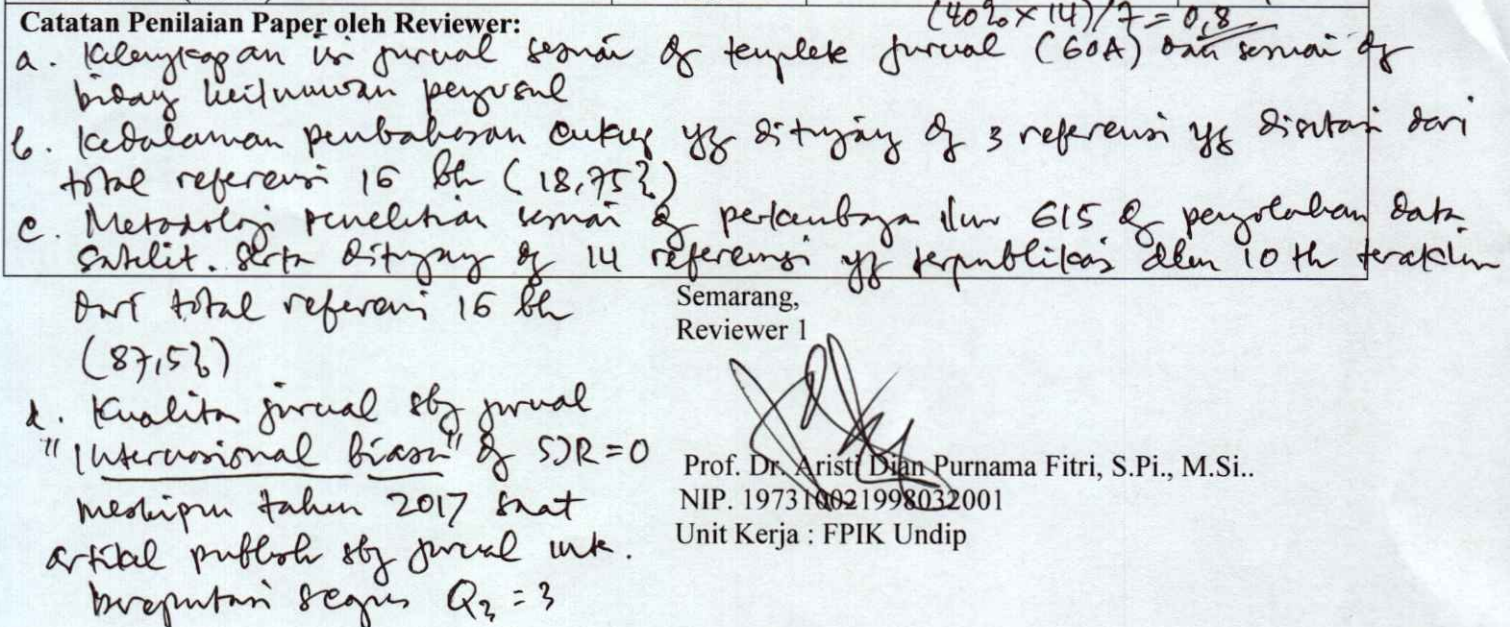 (40% x 14)/7 = 0,8
Catatan Penilaian Paper oleh Reviewer:
a. Kelengkapan isi jurnal sesuai dg template jurnal (GOA) dan sesuai dg
bidang keilmuwan pengusul
b. Kedalaman pembahasan cukup yg ditunjang dg 3 referensi yg disitasi dari
total referensi 16 bh (18,75%)
c. Metodologi penelitian sesuai dg ilmu GIS & pengolahan data
satelit. Serta ditunjang dg 14 referensi yg terpublikasi dlm 10 th terakhir
dari total referensi 16 bh
(87,5%)
d. Kualitas jurnal sbg jurnal
"Internasional biasa" dg SJR=0
meskipun tahun 2017 saat
artikel publish sbg jurnal int.
bereputasi Q3 = 3
Semarang,
Reviewer 1
Prof. Dr. Aristi Dian Purnama Fitri, S.Pi., M.Si..
NIP. 197310021998032001
Unit Kerja : FPIK Undip